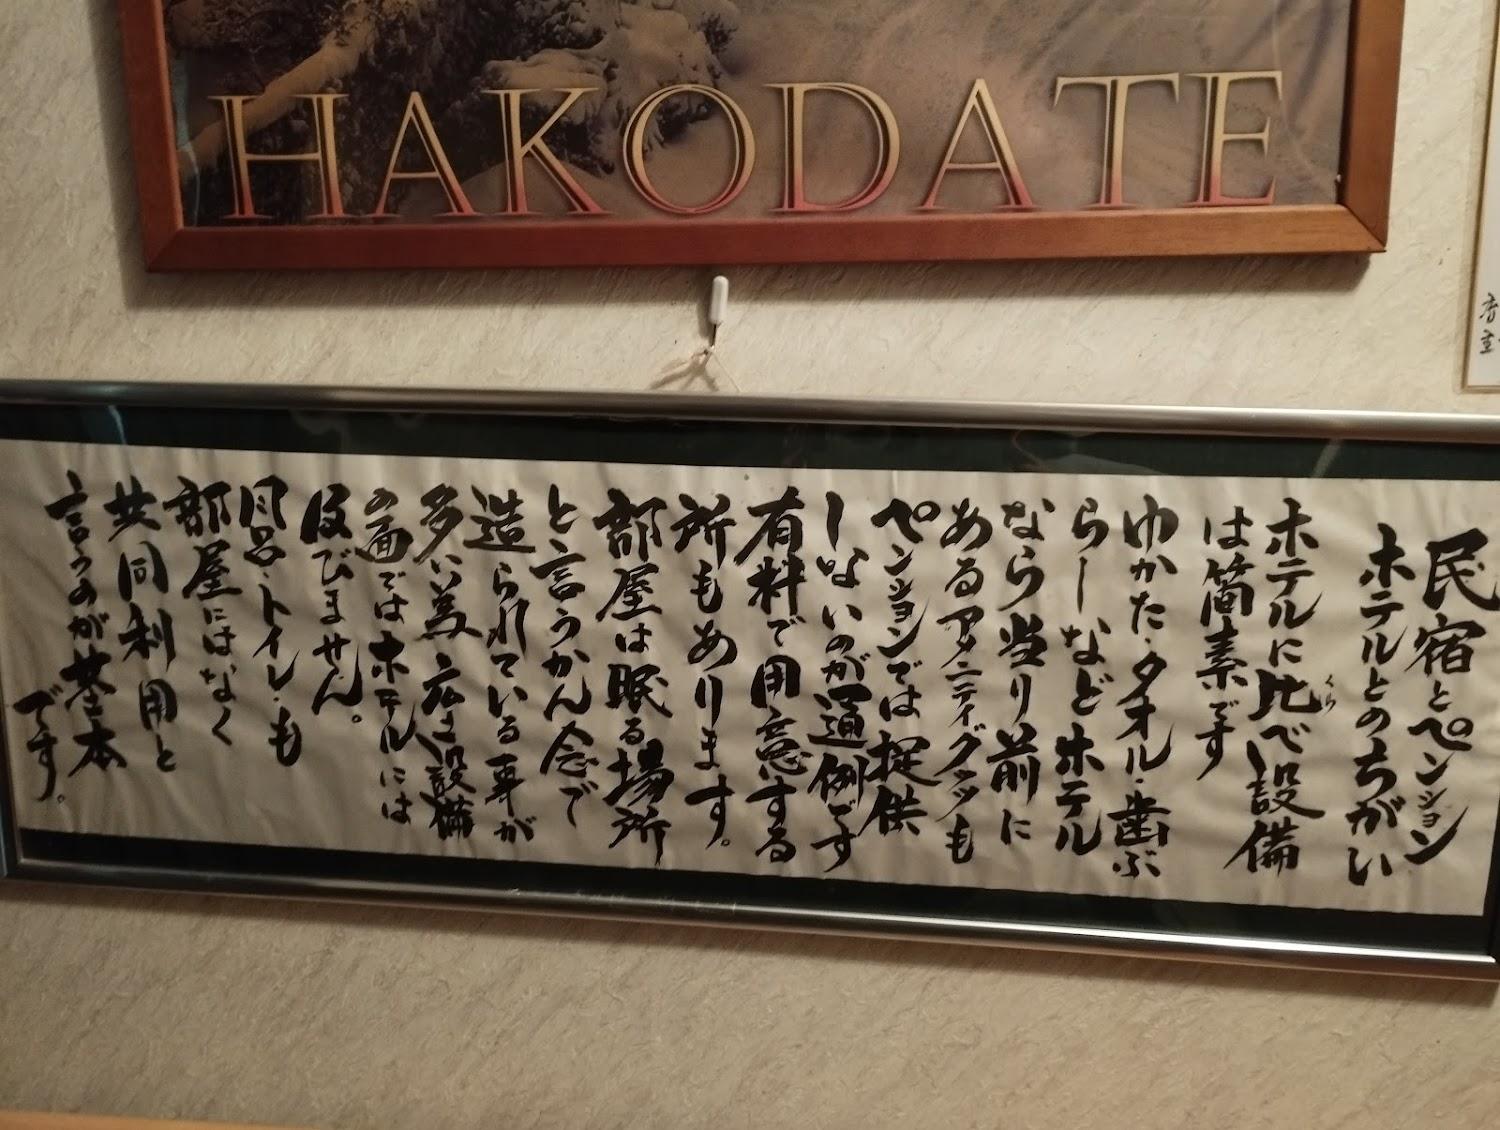 HAKODATE
民宿とペンション
ホテルとのちがい
ホテルに比べ設備
くら
は簡素です
ゆかた・タオル・歯ぶ
らしなどホテル
なら当り前に
あるアメニティグッツも
ペンションでは提供
しないのが通例です
有料で用意する
所もあります。
部屋は眠る場所
と言うがい念で
造られている事が
多い為、広さ、設備
の面ではホテルには
及びません。
風呂・トイレ・も
部屋にはなく
共同利用と
言うのが基本
です。